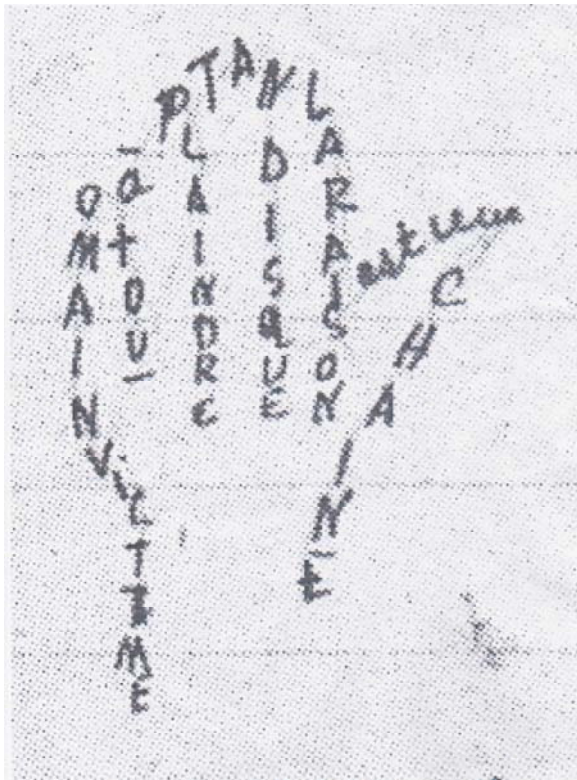 OMAINVICTIME
PLAINDRE
TANDISQUE
LARAISON
est une
CHAINE